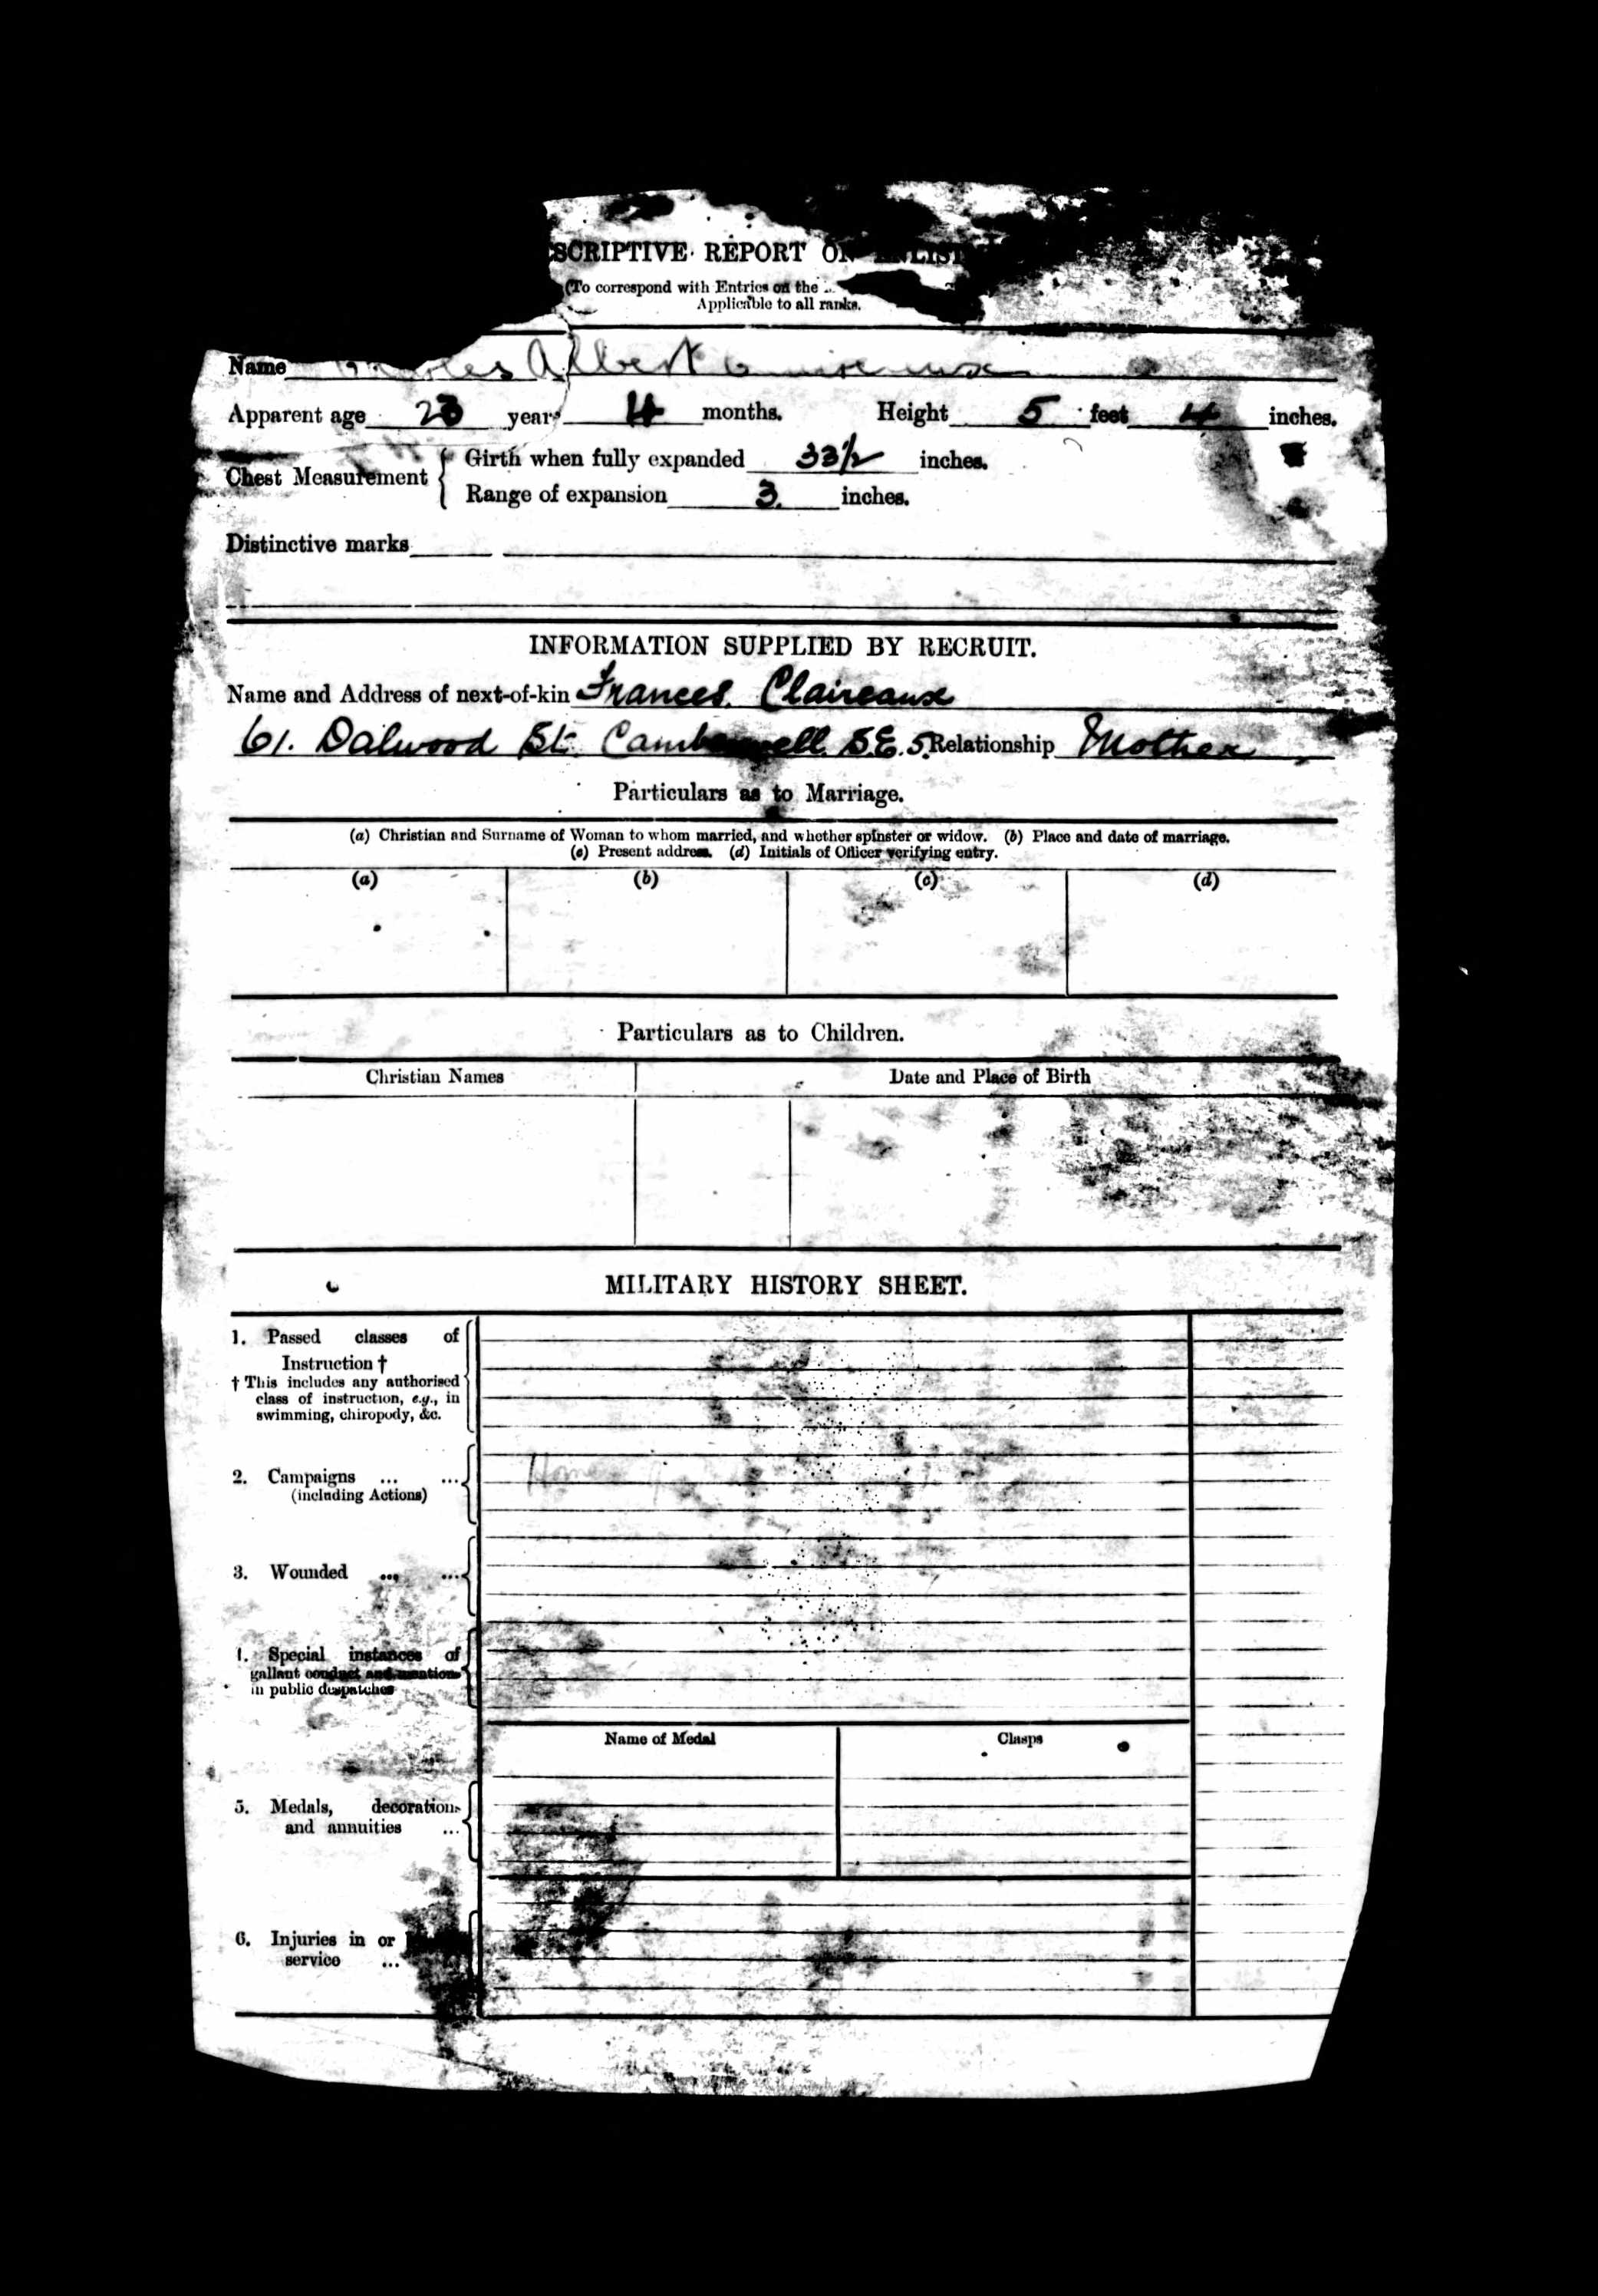 SCRIPTIVE REPORT ON ENLIST
(To correspond with Entries on the
Applicable to all ranks.
Name Charles Albert
Apparent age 23 years 4 months. Height 5 feet 4 inches.
Chest Measurement { Girth when fully expanded 33½ inches.
Range of expansion 3. inches.
Distinctive marks
INFORMATION SUPPLIED BY RECRUIT.
Name and Address of next-of-kin Frances. Claireaux
61. Dalwood St. Camberwell. S.E. 5. Relationship Mother
Particulars as to Marriage.
(a) Christian and Surname of Woman to whom married, and whether spinster or widow. (b) Place and date of marriage.
(c) Present address. (d) Initials of Officer verifying entry.
(a) (b) (c) (d)
Particulars as to Children.
Christian Names Date and Place of Birth
MILITARY HISTORY SHEET.
1. Passed classes of
Instruction †
† This includes any authorised
class of instruction, e.g., in
swimming, chiropody, &c.
2. Campaigns ... ...
(including Actions)
Home
3. Wounded ... ...
4. Special instances of
gallant conduct and mention
in public despatches
Name of Medal Clasps
5. Medals, decorations
and annuities ...
6. Injuries in or
service ...